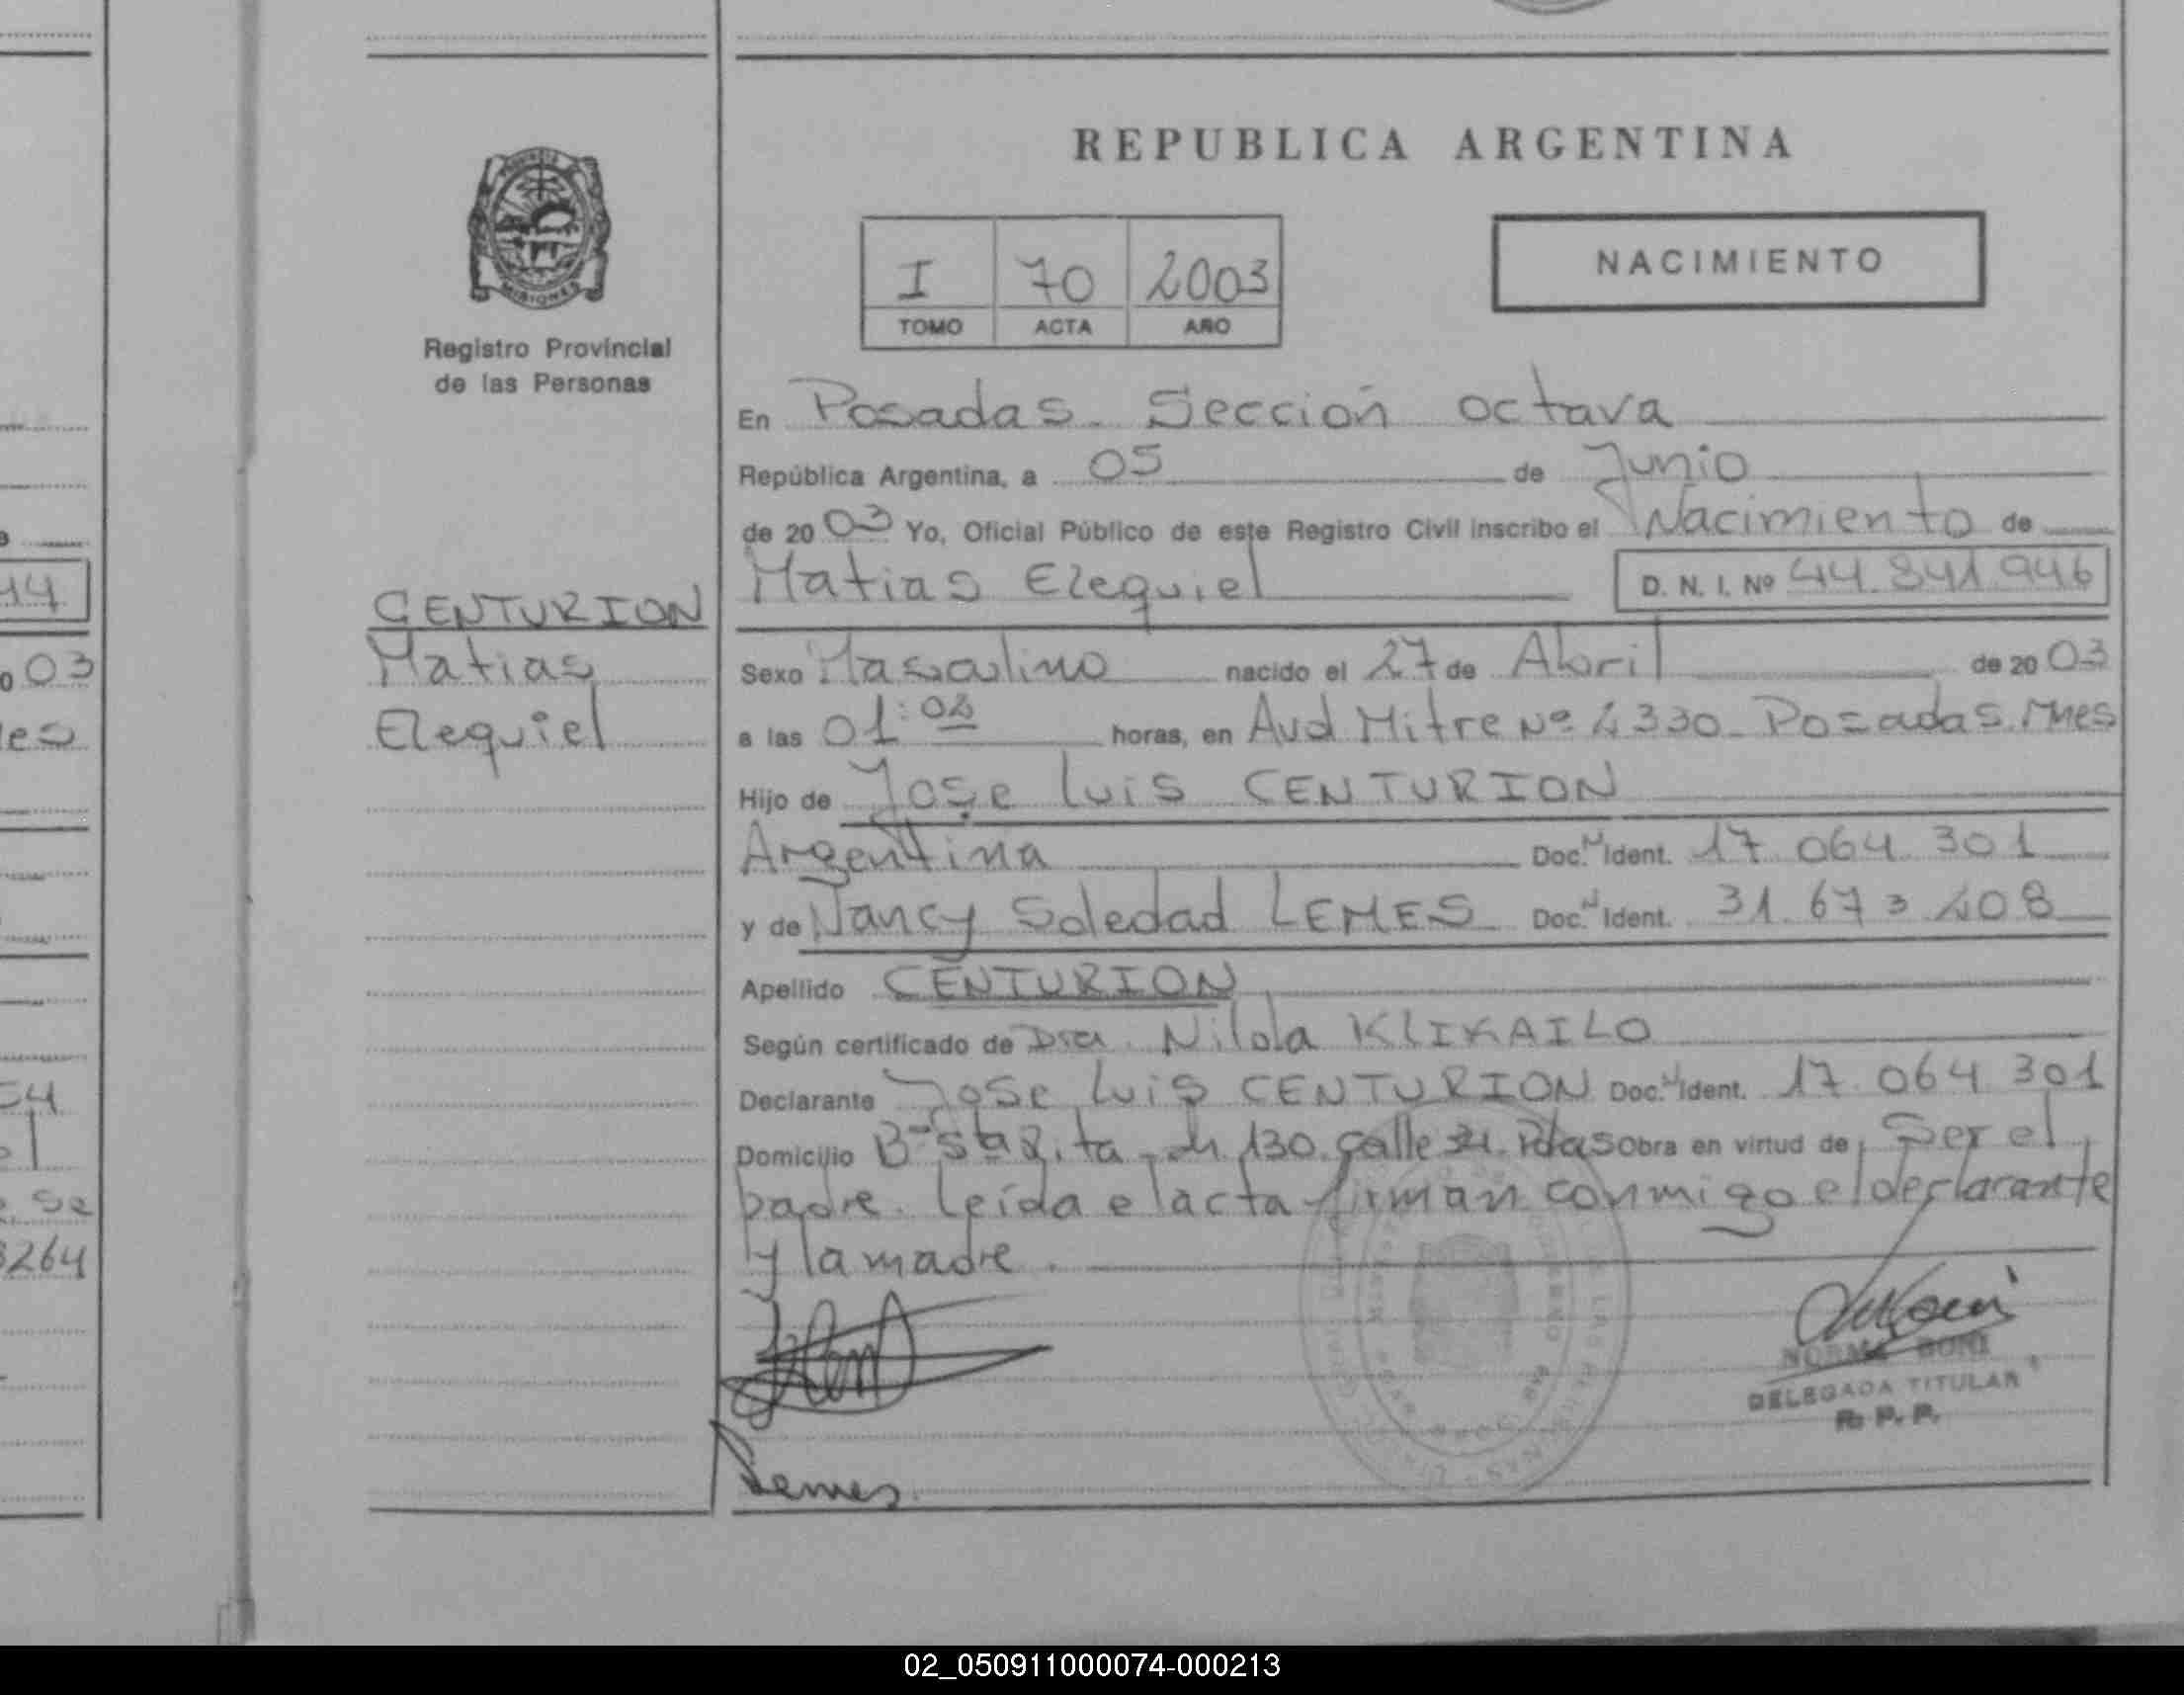 REPUBLICA ARGENTINA
I 70 2003
TOMO ACTA AÑO
NACIMIENTO
PROVINCIA
MISIONES
Registro Provincial
de las Personas
CENTURION
Matias
Ezequiel
En Posadas. Sección octava
República Argentina, a 05 de Junio
de 2003 Yo, Oficial Público de este Registro Civil inscribo el Nacimiento de
Matias Ezequiel D. N. I. Nº 44.841.946
Sexo Masculino nacido el 27 de Abril de 2003
a las 01:02 horas, en Avd Mitre Nº 2330. Posadas. Mnes
Hijo de Jose Luis CENTURION
Argentina Doc. N Ident. 17.064.301
y de Nancy Soledad LEMES Doc. N Ident. 31.673.208
Apellido CENTURION
Según certificado de Dra. Nilda KLIKAILO
Declarante Jose Luis CENTURION Doc. N Ident. 17.064.301
Domicilio Bº Sta Rita 130 calle Pdas Obra en virtud de Ser el
padre. Leída el acta firman conmigo el declarante
y la madre.
Lemes.
NORMA BONI
DELEGADA TITULAR
R. P. P.
14
03
es
54
el
se
264
02_050911000074-000213